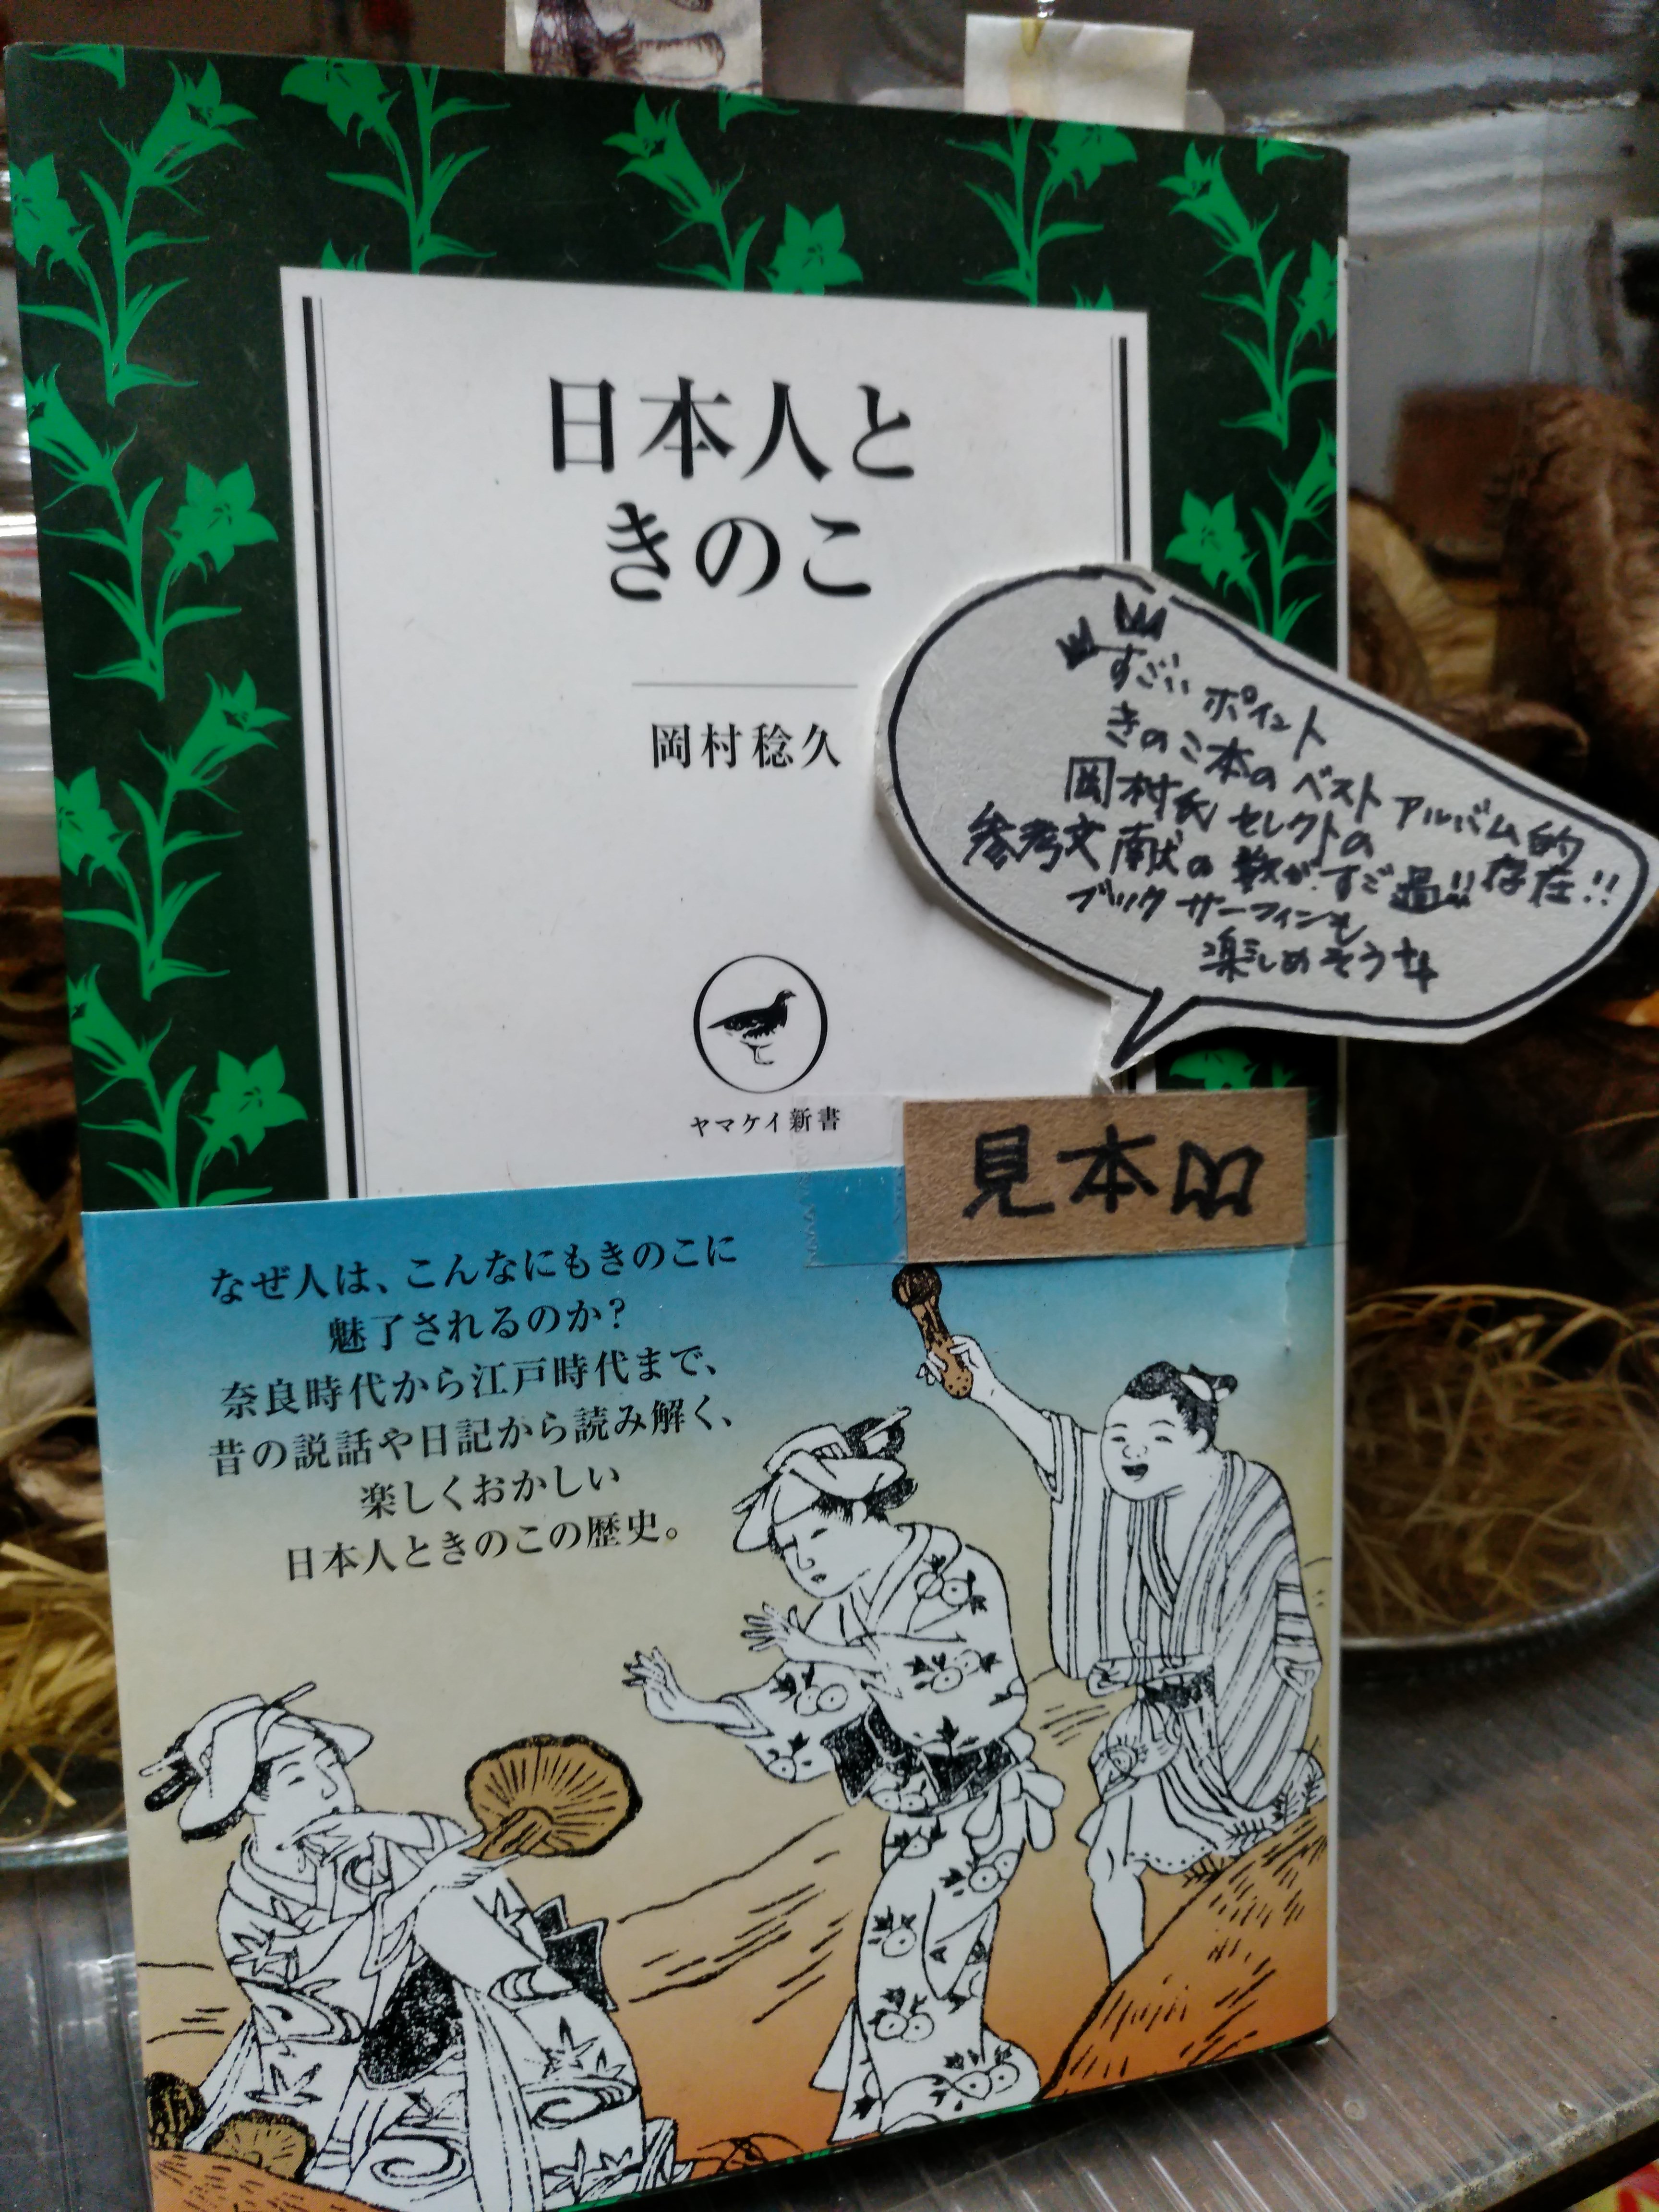 日本人と
きのこ
岡村稔久
ヤマケイ新書
すごいポイント
きのこ本のベストアルバム的
存在!!
岡村氏セレクトの
参考文献の数がすご過!!
ブックサーフィンも
楽しめそうなり
見本
なぜ人は、こんなにもきのこに
魅了されるのか?
奈良時代から江戸時代まで、
昔の説話や日記から読み解く、
楽しくおかしい
日本人ときのこの歴史。